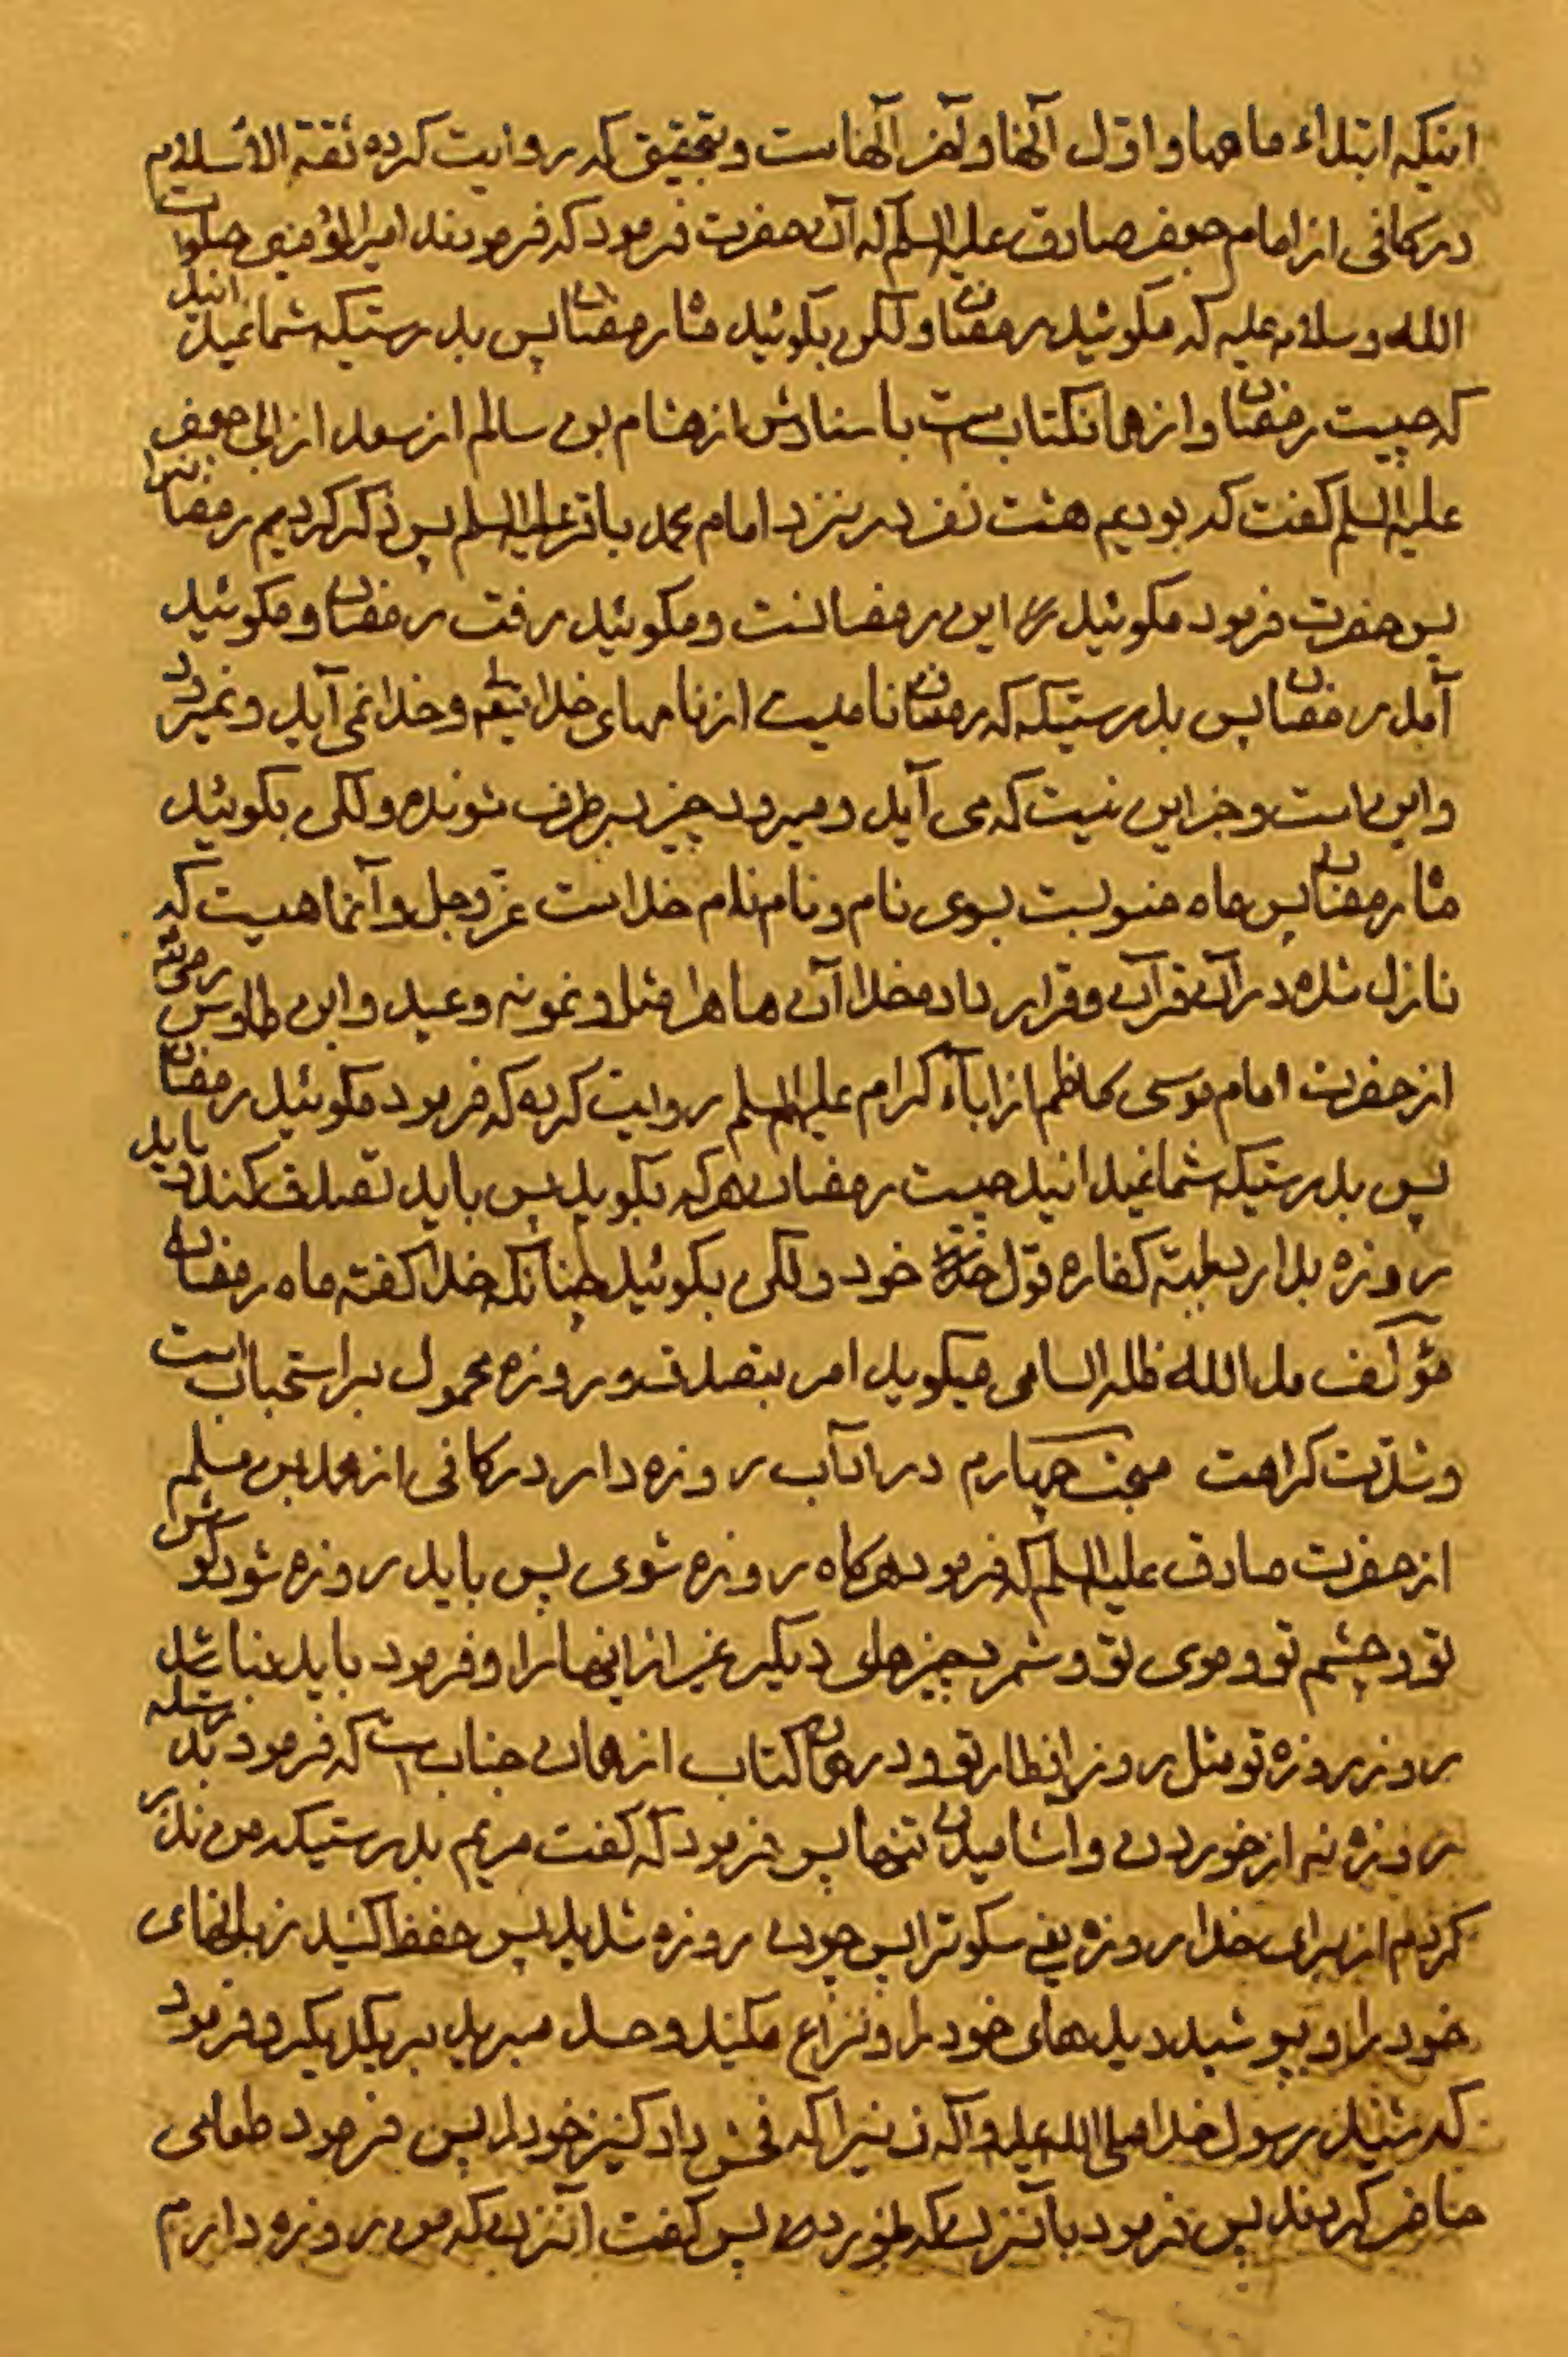 اینکه ابتداء ماهها و اول آنها و آخر آنهاست و بتحقیق که روایت کرده ثقة الاسلام
در کافی از امام جعفر صادق علیه السلم که آن حضرت فرمود که فرمودند امیر المؤمنین صلوات
الله و سلامه علیه که مگوئید رمضان و لکن بگوئید ماه رمضان پس بدرستیکه شما نمیدانید
که چیست رمضان و از همان کتابست باسنادش از هشام بن سالم از سعد از ابی جعفر
علیه السلم گفت که بودیم هشت نفر در نزد امام محمد باقر علیه السلم پس ذکر کردیم رمضانرا
پس حضرت فرمود مگوئید این رمضانست و مگوئید رفت رمضان و مگوئید
آمد رمضان پس بدرستیکه که رمضان نامیست از نامهای خدایتعالی و خدا نمی آید و نمیرود
و اینست و جز این نیست که می آید و میرود چیز برطرف شونده و لکن بگوئید
ماه رمضان پس ماه منسوبست بسوی نام و نام نام خداست عز و جل و آنماهیست که
نازل شده در آن قرآن و قرار داده خدا آن ماه را مثل و نمونه و عید و ابن طاوس
از حضرت امام موسی کاظم از اباء کرام علیهم السلم روایت کرده که فرمود مگوئید رمضان
پس بدرستیکه شما نمیدانید چیست رمضان هر که بگوید پس باید تصدق کند باید
روزه بدارد بجهة کفاره قول خود و لکن بگوئید چنانکه خدا گفته ماه رمضان
مؤلف مد الله ظله السامی میگوید امر بتصدق و روزه محمول بر استحباب است
و شدت کراهت مبحث چهارم در اداب روزه دار در کافی از محمد بن مسلم
از حضرت صادق علیه السلم که فرمود هرگاه روزه شوی پس باید روزه شود گوش
تو و چشم تو و موی تو و شمرد چیزهای دیگر غیر از اینها را و فرمود باید نباشد
روز روزه تو مثل روز افطار تو و در همان کتاب از همان جنابست که فرمود بدرستیکه
روزه نه از خوردن و آشامیدن تنها پس فرمود که گفت مریم بدرستیکه من نذر
کردم از برای خدا روزه یعنی سکوترا پس چون روزه شدید پس حفظ کنید زبانهای
خود را و بپوشید دیدهای خود را و نزاع مکنید و حسد مبرید بر یکدیگر و فرمود
که شنید رسول خدا صلی الله علیه و آله زنیرا که فحش داد کنیز خود را پس فرمود طعامی
حاضر کردند پس فرمود بآنزن که بخور پس گفت آنزن که من روزه دارم